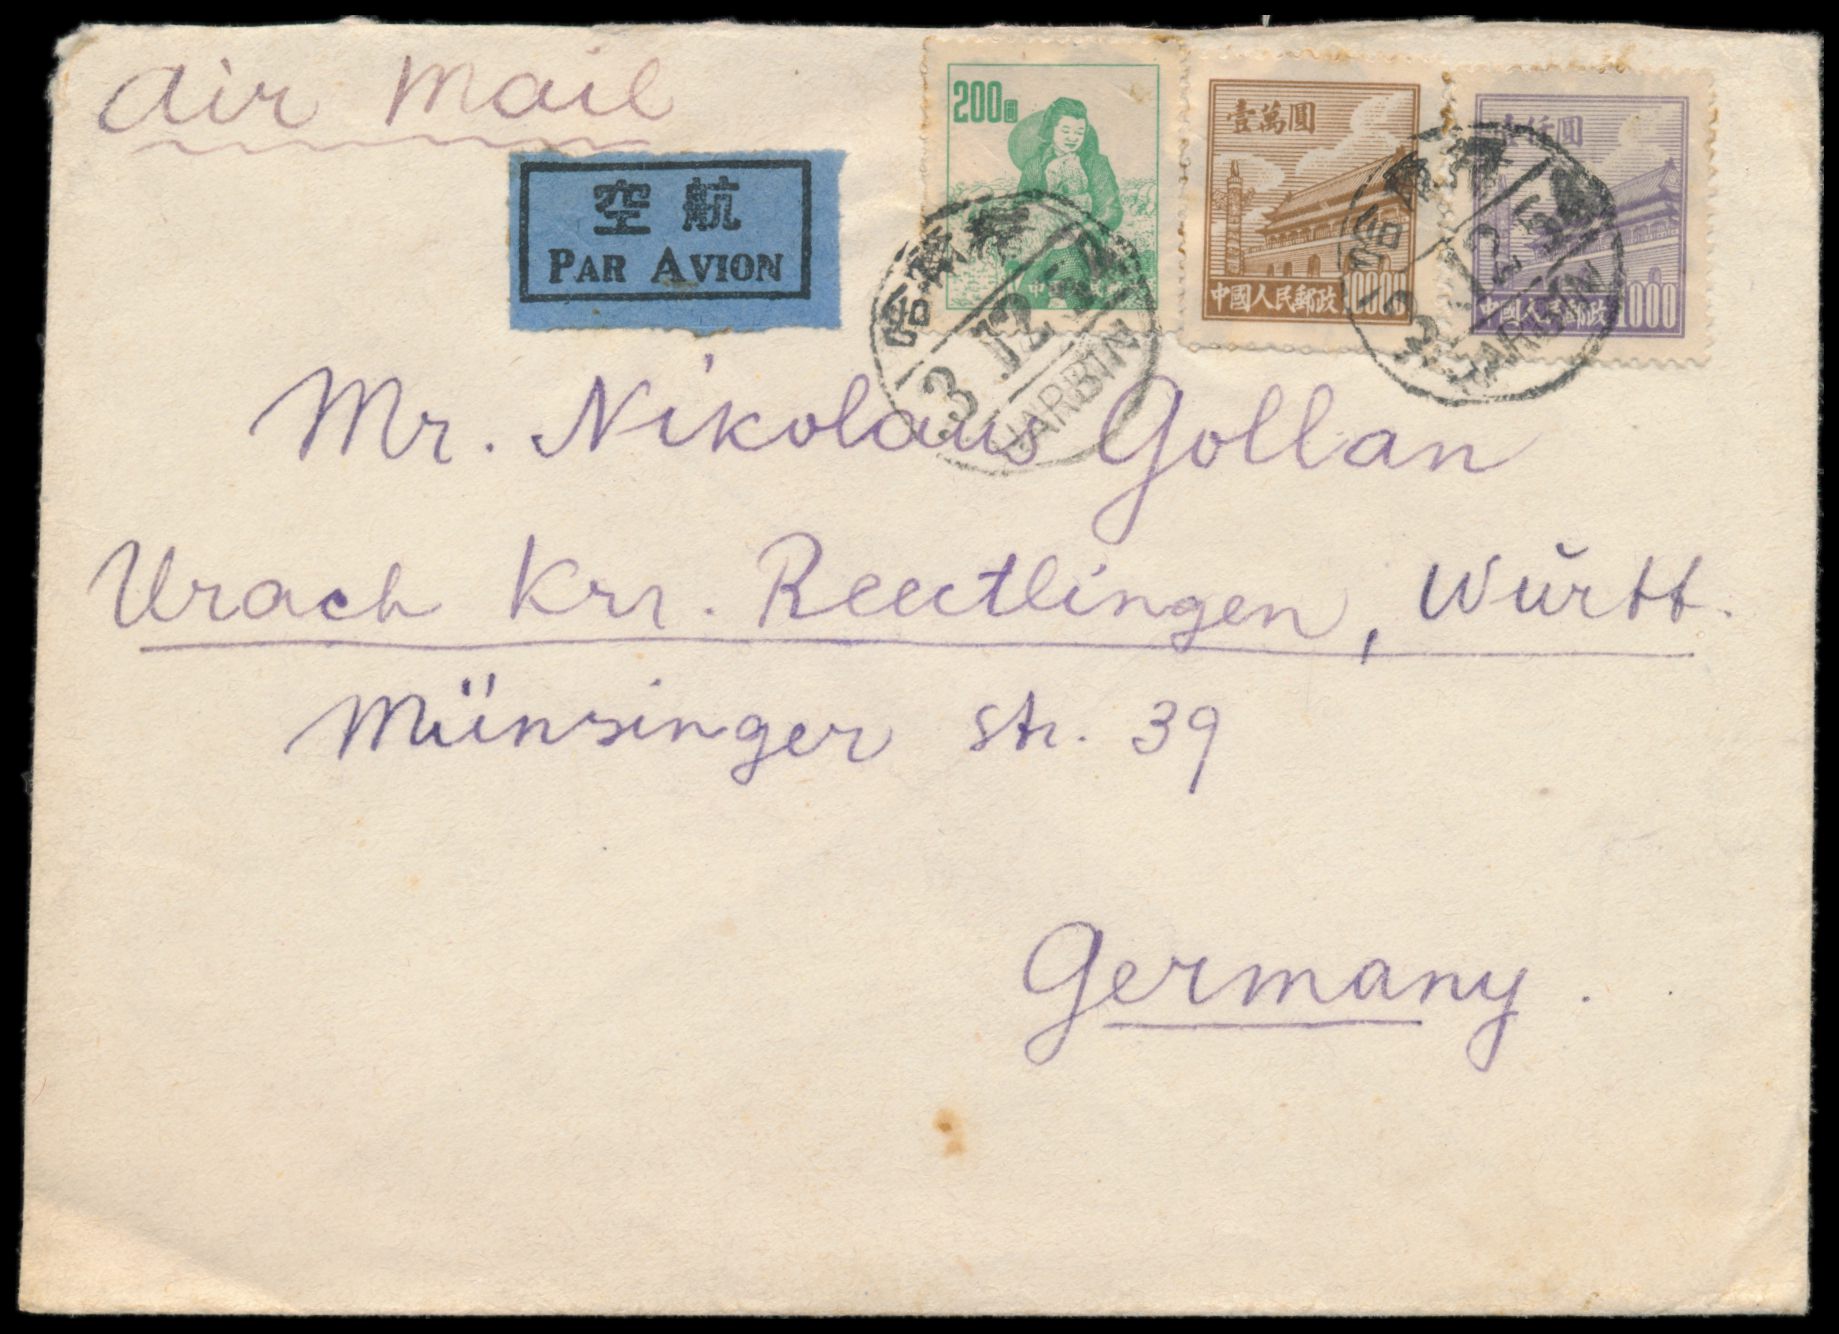 Air Mail
空航
PAR AVION
200圓
中國人民
壹萬圓
中國人民郵政
壹仟圓
中國人民郵政 1000
3 12
HARBIN
12 5
HARBIN
Mr. Nikolaus Gollan
Urach Krr. Reectlingen, Württ.
Münsinger Str. 39
Germany.